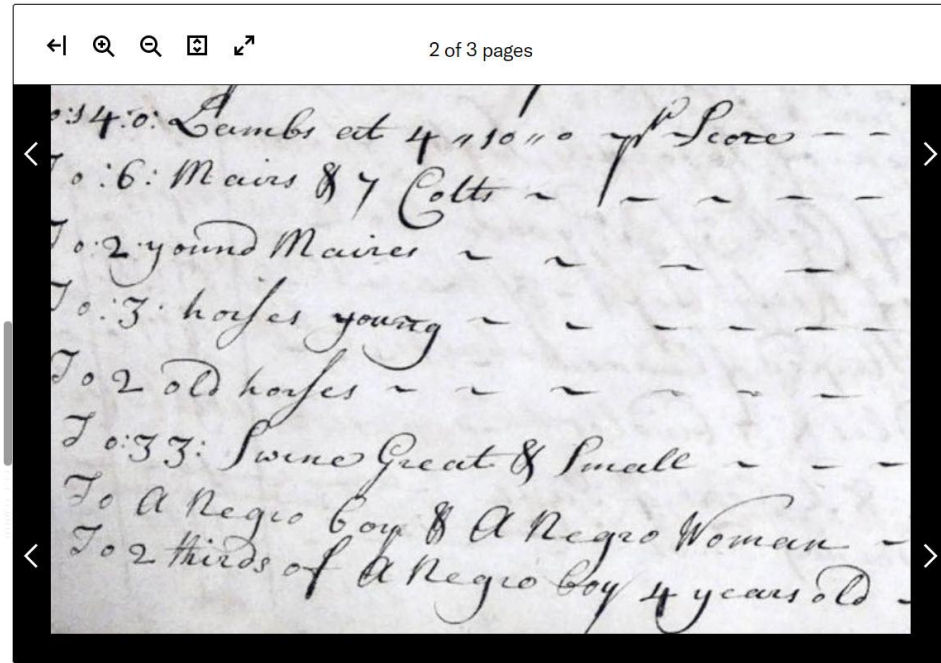 2 of 3 pages
o:54:0: Lambs at 4 "10"0 pr Score - -
To :6: Mairs & 7 Colts ~ - ~ - -
To:2:yound Maires ~ ~ - -
To :3: horses young ~ ~ - - - -
To 2 old horses ~ ~ ~ - - -
To:33: Swine Great & Small ~ - -
To A Negro boy & A Negro Woman -
To 2 thirds of A Negro boy 4 years old -